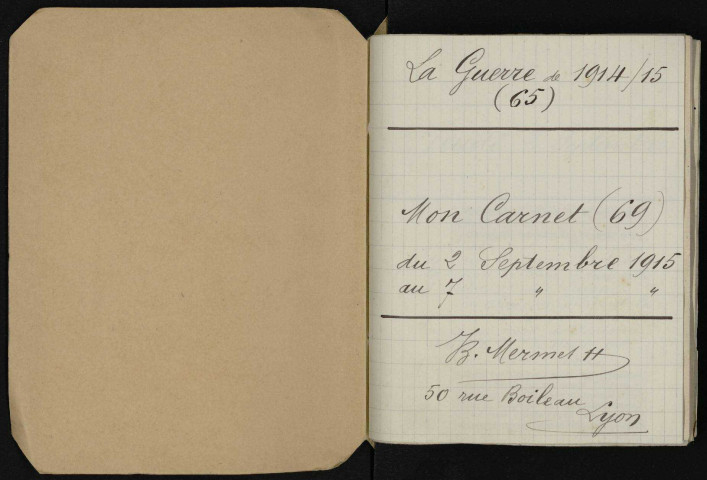 La Guerre de 1914/15
(65)
Mon Carnet (69)
du 2 Septembre 1915
au 7 " "
B. Mermet
50 rue Boileau
Lyon